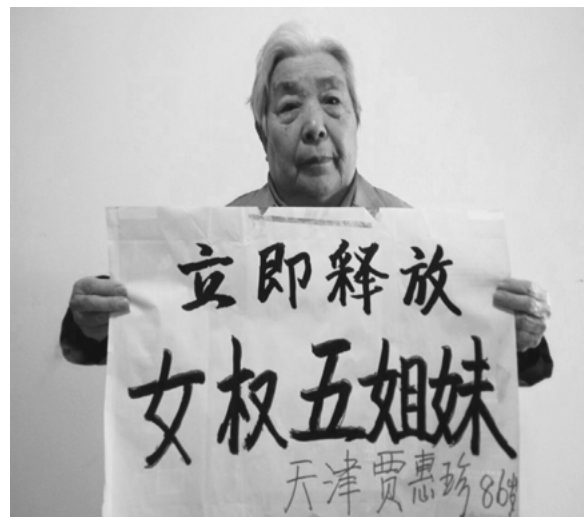 立即释放
女权五姐妹
天津贾惠珍86岁